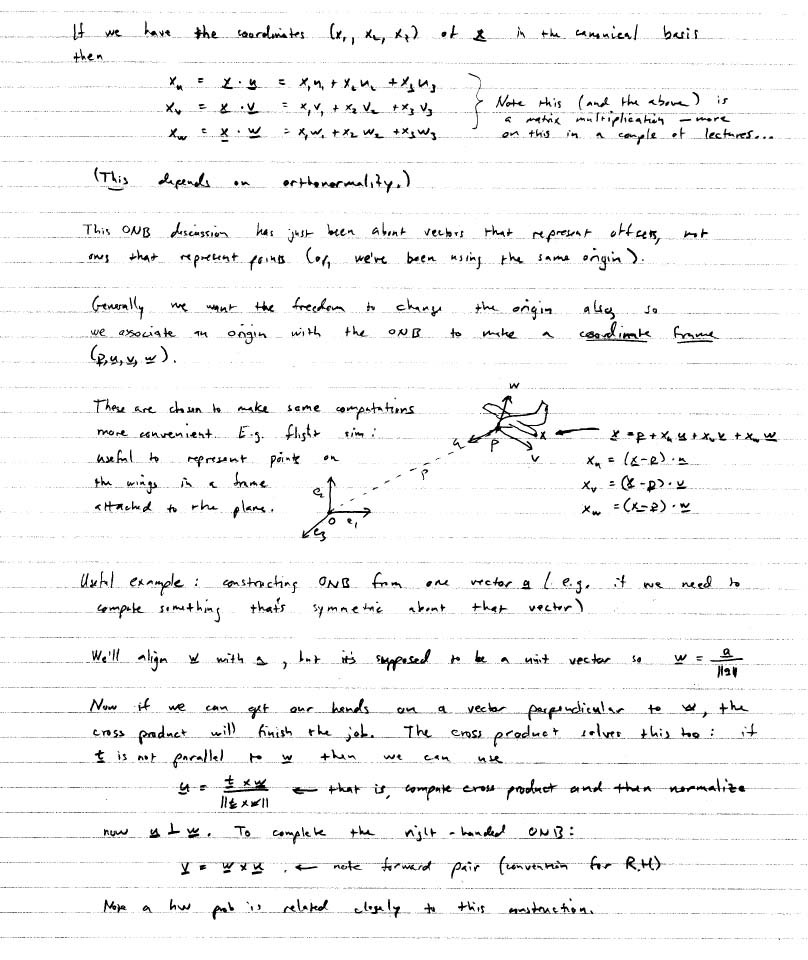 If we have the coordinates (x₁, x₂, x₃) of x in the canonical basis
then
xᵤ = x · u = x₁u₁ + x₂u₂ + x₃u₃
xᵥ = x · v = x₁v₁ + x₂v₂ + x₃v₃
x_w = x · w = x₁w₁ + x₂w₂ + x₃w₃
Note this (and the above) is
a matrix multiplication — more
on this in a couple of lectures...
(This depends on orthonormality.)
This ONB discussion has just been about vectors that represent offsets, not
ones that represent points (or, we've been using the same origin).
Generally we want the freedom to change the origin also, so
we associate an origin with the ONB to make a coordinate frame
(p, u, v, w).
These are chosen to make some computations
more convenient. E.g. flight sim:
useful to represent points on
the wings in a frame
attached to the plane.
w
u
p
x
v
p
e₂
o
e₁
e₃
x = p + xᵤ u + xᵥ v + x_w w
xᵤ = (x - p) · u
xᵥ = (x - p) · v
x_w = (x - p) · w
Useful example: constructing ONB from one vector a (e.g. if we need to
compute something that's symmetric about that vector)
We'll align w with a, but it's supposed to be a unit vector so w = a / ||a||
Now if we can get our hands on a vector perpendicular to w, the
cross product will finish the job. The cross product solves this too: if
t is not parallel to w then we can use
u = t × w / ||t × w|| ← that is, compute cross product and then normalize
now u ⊥ w. To complete the right-handed ONB:
v = w × u. ← note forward pair (convention for R.H)
Note a hw prob is related closely to this construction.